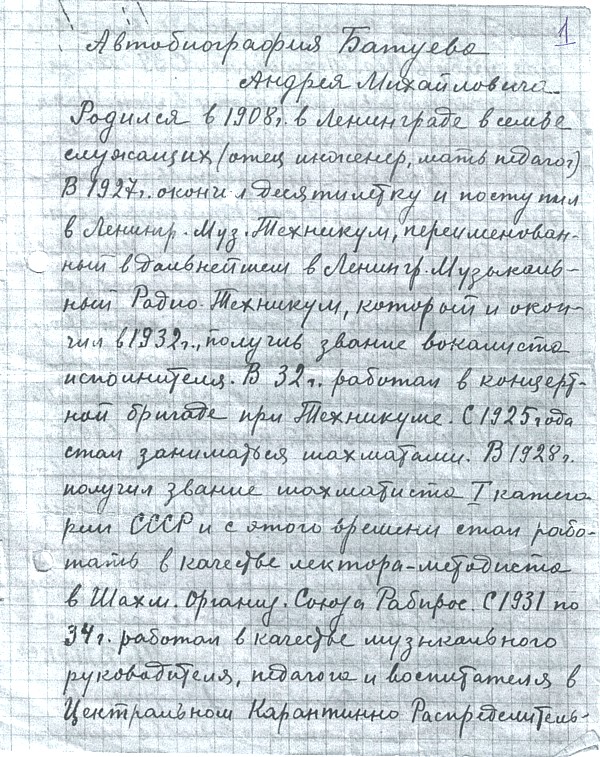 1
Автобиография Батуева
Андрея Михайловича
Родился в 1908г. в Ленинграде в семье
служащих (отец инженер, мать педагог)
В 1927г. окончил десятилетку и поступил
в Ленингр. Муз. Техникум, переименован-
ный в дальнейшем в Ленингр. Музыкаль-
ный Радио-Техникум, который и окон-
чил в 1932г., получив звание вокалиста
исполнителя. В 32г. работал в концерт-
ной бригаде при Техникуме. С 1925 года
стал заниматься шахматами. В 1928г.
получил звание шахматиста I катего
рии СССР и с этого времени стал рабо-
тать в качестве лектора-методиста
в Шахм. Организ. Союза Рабирос. С 1931 по
34г. работал в качестве музыкального
руководителя, педагога и воспитателя в
Центральном Карантинно Распределитель-